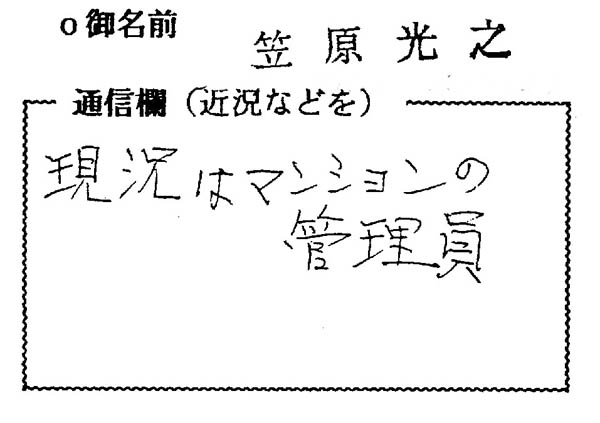 o御名前 笠原光之
通信欄（近況などを）
現況はマンションの
管理員